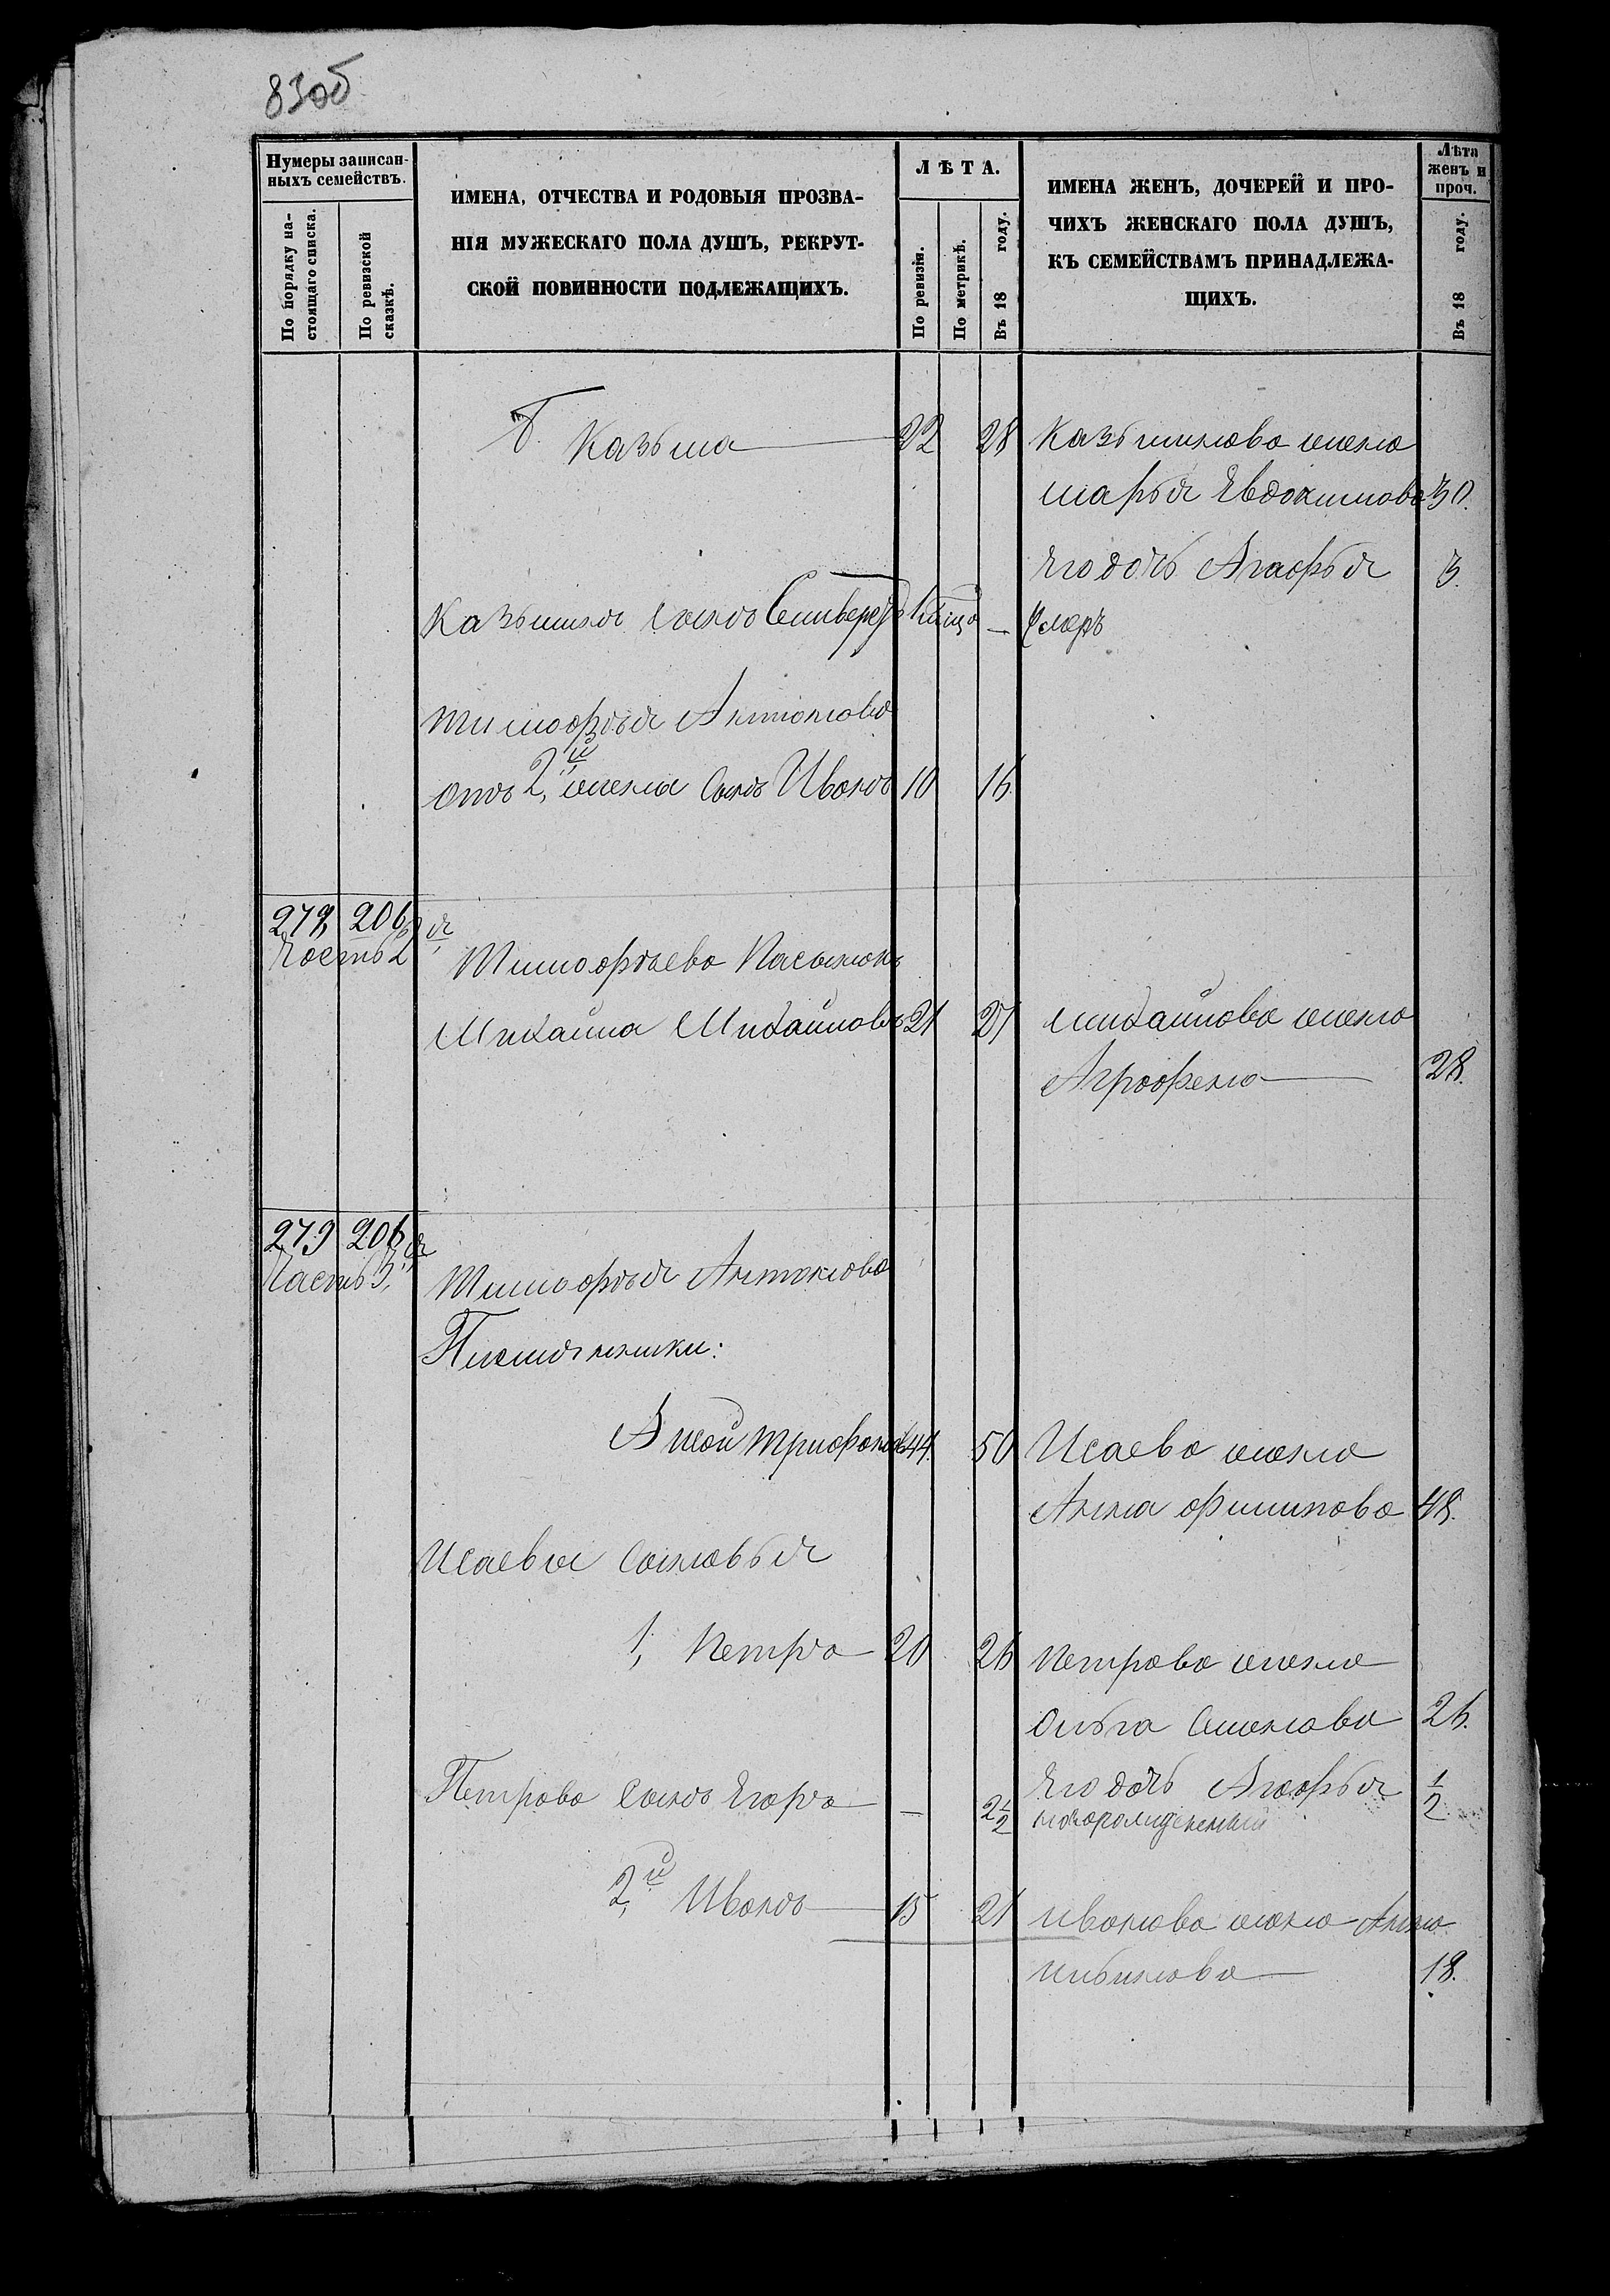 83об
Нумеры записан-
ныхъ семействъ.
По порядку на-
стоящаго списка.
По ревизской
сказкѣ.
ИМЕНА, ОТЧЕСТВА И РОДОВЫЯ ПРОЗВА-
НІЯ МУЖЕСКАГО ПОЛА ДУШЪ, РЕКРУТ-
СКОЙ ПОВИННОСТИ ПОДЛЕЖАЩИХЪ.
ЛѢТА.
По ревизіи.
По метрикѣ.
Въ 18 году.
ИМЕНА ЖЕНЪ, ДОЧЕРЕЙ И ПРО-
ЧИХЪ ЖЕНСКАГО ПОЛА ДУШЪ,
КЪ СЕМЕЙСТВАМЪ ПРИНАДЛЕЖА-
ЩИХЪ.
Лѣта
женъ и
проч.
Въ 18 году.
Казьма 22 28 Казьминова жена
Марья Евдокимова 30.
Его дочь Агафья 3.
Казьминъ сынъ — Умеръ
Тимофѣя Антонова
отъ 2й жены сынъ Иванъ 10 16
279, 206
Часть 2я
Тимофѣева Пасынокъ
Михайла Михайловъ 21 27 Михайлова жена
Агрофена 28.
279 206
Часть 3я
Тимофѣя Антонова
Племянники:
Исай Трифоновъ 44. 50 Исаева жена
Анна Филипова 48.
Исаевы сыновья
1, Петръ 20 26 Петрова жена
Ольга Семенова 26.
Его дочь Агафья 1/2
Петрова сынъ Егоръ — 2 1/2 новорожденный
2й Иванъ 15 21 Иванова жена Анна
18.